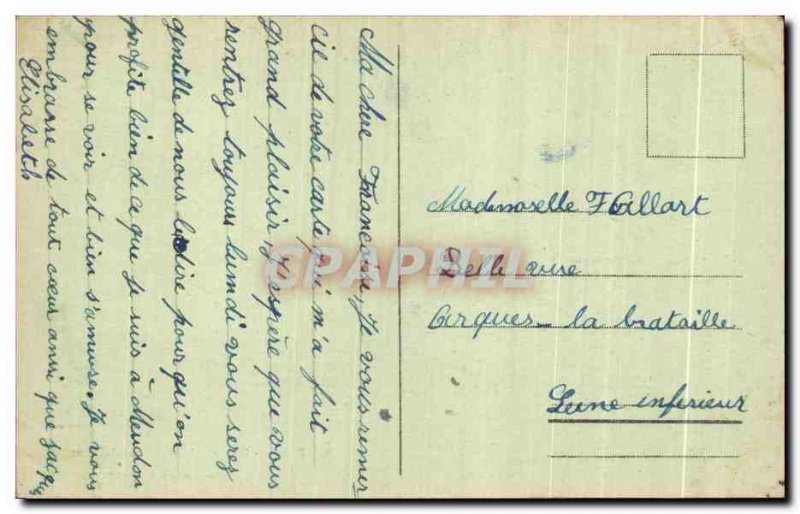 Ma chère Françoise, Je vous remer
cie de votre carte qui m'a fait
grand plaisir, j'espère que vous
rentrez toujours lundi vous serez
gentille de nous le dire pour qu'on
profite bien de ce que je suis à Meudon
pour se voir et bien s'amuser. Je vous
embrasse de tout cœur ainsi que
Elisabeth
Mademoselle F Gallart
Belle vue
Arques-la brataille
Seine inferieur
CPAPHIL